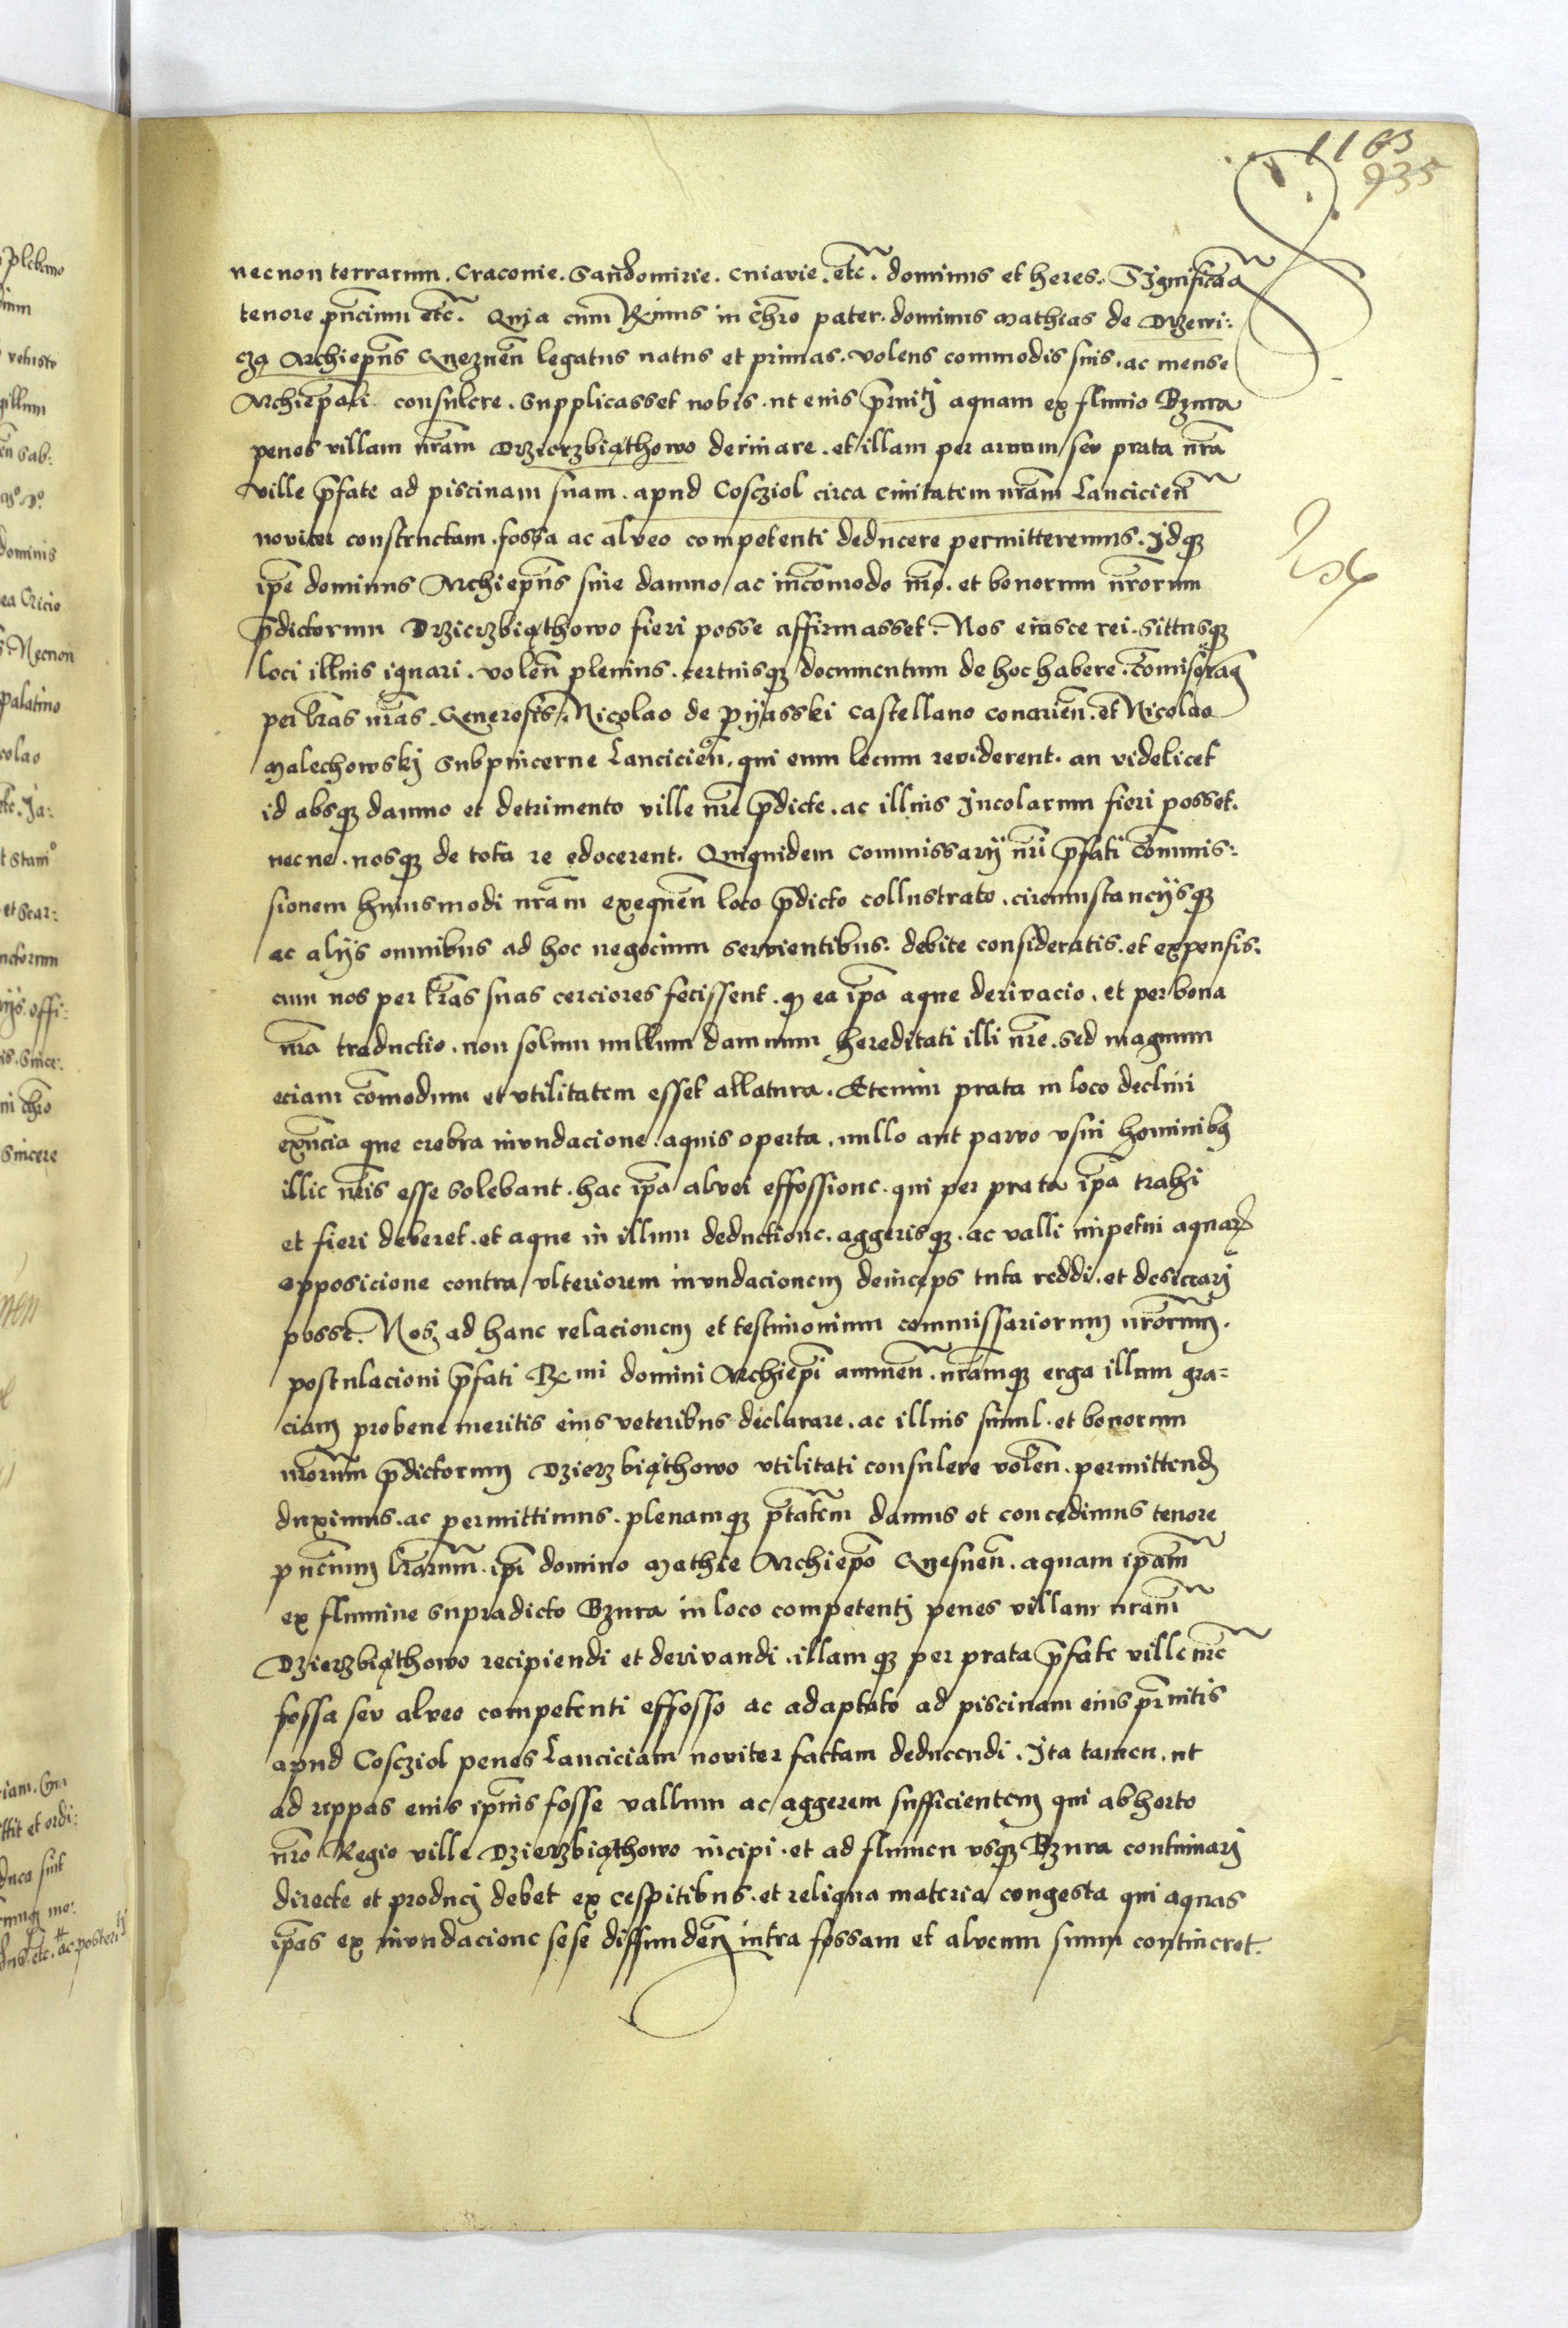 1163
935
necnon terrarum. Craconie. Sandomirie. Cuiavie. etc̃. dominus et heres. Significam̃
tenore pñcium etc̃. Quia cum Rm̃us in chr̃o pater. dominus Mathias de Drzewi:
cza Archiepũs Gneznen̄ legatus natus et primas. volens commodis suis. ac mense
Archiep̃ali consulere. supplicasset nobis. ut eius p̃rnitj aquam ex fluuio Bzura
penes villam nr̃am Drzierzbiąthowo deriuare. et illam per aruum seu prata nr̃a
ville p̃fate ad piscinam suam. apud CosczIol circa ciuitatem nr̃am Lancicien̄
noviter constructam. fossa ac alveo competenti deducere permitteremus. Idq̃
ip̃e dominus Archiepũs sine damno ac incõmodo nr̃o. et bonorum nr̃orum
p̃dictorum Drzierzbiąthowo fieri posse affirmasset. Nos eiusce rei. sittusq̃
loci illius ignari. volen̄ plenius. certiusq̃ documentum de hoc habere. cõmiserã
per lr̃as nr̃as. Generosis. Nicolao de Pijasski Castellano Conarien̄. et Nicolao
Malechowskj Subpincerne Lancicien̄. qui eum locum reviderent. an videlicet
id absq̃ damno et detrimento ville nr̃e p̃dicte. ac illius Jncolarum fieri posset.
necne. nosq̃ de tota re edocerent. Quiquidem commissarij nr̃i p̃fati cõmmis:
sionem huiusmodi nr̃am exequen̄ loco p̃dicto collustrato. circumstancijsq̃
ac alijs omnibus ad hoc negocium servientibus. debite consideratis. et expensis.
cum nos per lr̃as suas cerciores fecissent. q̃ ea ip̃a aque derivacio. et per bona
nr̃a traductio. non solum nullum damnum hereditati illi nr̃e. sed magnum
eciam cõmodum et utilitatem esset allatura. Etenim prata in loco declivi
exñcia que crebra inundacione. aquis operta. nullo aut parvo usui hominibꝫ
illic nr̃is esse solebant. hac ip̃a alvei effossione. qui per prata ip̃a trahi
et fieri deberet. et aque in illum deductione. aggerisq̃. ac valli impetui aquarꝫ
opposicione contra ulteriorem inundacionem deinceps tuta reddi. et desiccarj
posse. Nos ad hanc relacionem et testimonium commissariorum nr̃orum.
postulacioni p̃fati Rmi domini Archiep̃i annuen̄. nr̃amq̃ erga illum gra=
ciam pro bene meritis eius veteribus declarare. ac illius simul. et bonorum
nr̃orum p̃dictorum Dzierzbiąthowo utilitati consulere volen̄. permittend̃
duximus. ac permittimus. plenamq̃ p̃tatem damus et concedimus tenore
pñcium lr̃arum. ip̃i domino Mathie Archiep̃o Gnesnen̄. aquam ip̃am
ex flumine supradicto Bzura in loco competentj penes villam nr̃am
Dzierzbiąthowo recipiendi et derivandi. illamq̃ per prata p̃fate ville nr̃e
fossa seu alveo competenti effosso ac adaptato ad piscinam eius p̃rnitis
apud CosczIol penes Lanciciam noviter factam deducendi. Ita tamen. ut
ad rippas eius ip̃ius fosse vallum ac aggerem sufficientem qui ab horto
nr̃o Regio ville Dzierzbiąthowo incipi. et ad flumen usq̃ Bzura continuarj
directe et producj debet ex cespitibus. et reliqua materia congesta qui aquas
ip̃as ex inundacione sese diffunden̄ intra fossam et alveum suum contineret.